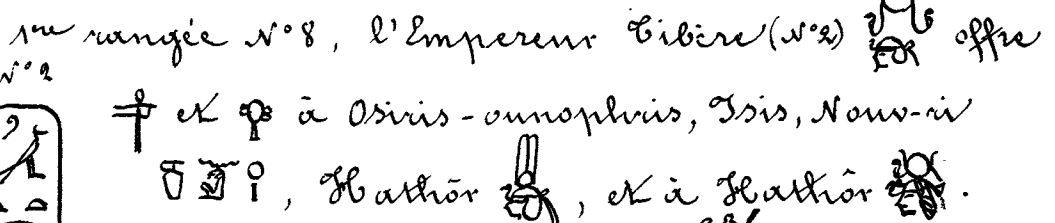 1ère rangée N° 8, l'Empereur Tibère (N° 2) offre
N° 2
et à Osiris-ounophris, Isis, Nouv-ri
, Hathôr , et à Hathôr .